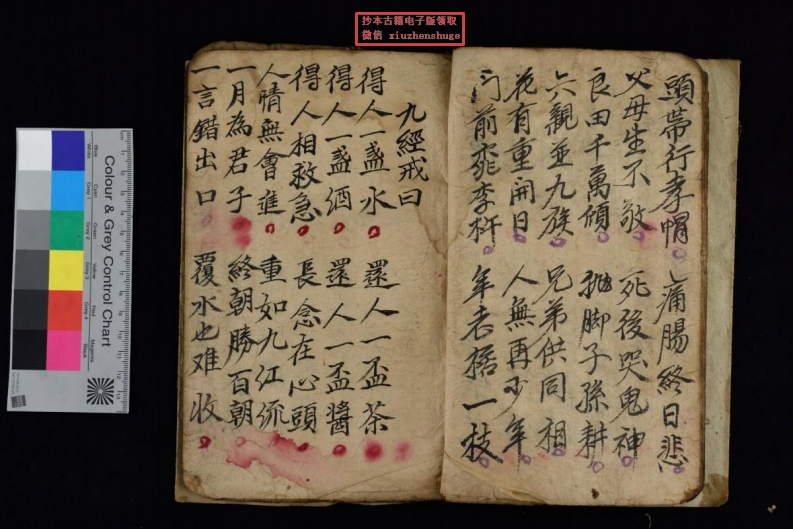 抄本古籍电子版领取
微信 xiuzhenshuge
頭帶行孝帽 痛腸終日悲
父母生不敬 死後哭鬼神
良田千萬傾 抛脚子孫耕
六親並九族 兄弟供同相
花有重開日 人無再少年
门前 李 年老 一枝
九經戒曰
得人一盞水 還人一盃茶
得人一盞酒 還人一盃醬
得人相救急 長念在心頭
人情無會進 重如九江流
一月為君子 終朝勝百朝
一言錯出口 覆水也难收
Colour & Grey Control Chart
Blue Cyan Green Yellow Red Magenta
White Grey 1 Grey 2 Grey 3 Grey 4 Black